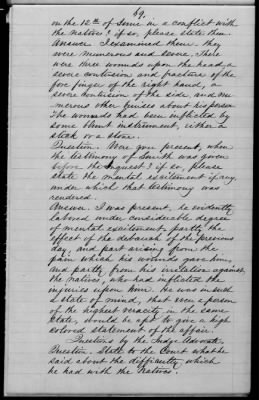 69.
on the 12th of June in a conflict with
the natives? if so, please state them.
Answer I examined them. they
were numerous and severe. There
were three wounds upon the head, a
severe contusion and fracture of the
fore finger of the right hand, a
severe contusion of the side and nu-
merous other bruises about his person.
The wounds had been inflicted by
some blunt instrument, either a
stick or a stone.
Question. Were you present, when
the testimony of Smith was given
before the inquest? if so, please
state the mental excitement if any,
under which that testimony was
rendered.
Answer. I was present, he evidently
labored under considerable degree
of mental excitement, partly the
effect of the debauch of the previous
day, and part arising from the
pain which his wounds gave him,
and partly from his irritation against
the natives, who had inflicted the
injuries upon him. He was in such
a state of mind, that even a person
of the highest veracity in the same
state, would be apt to give a high
colored statement of the affair.
Questions by the Judge Advocate.
Question. State to the Court what he
said about the difficulty which
he had with the natives.